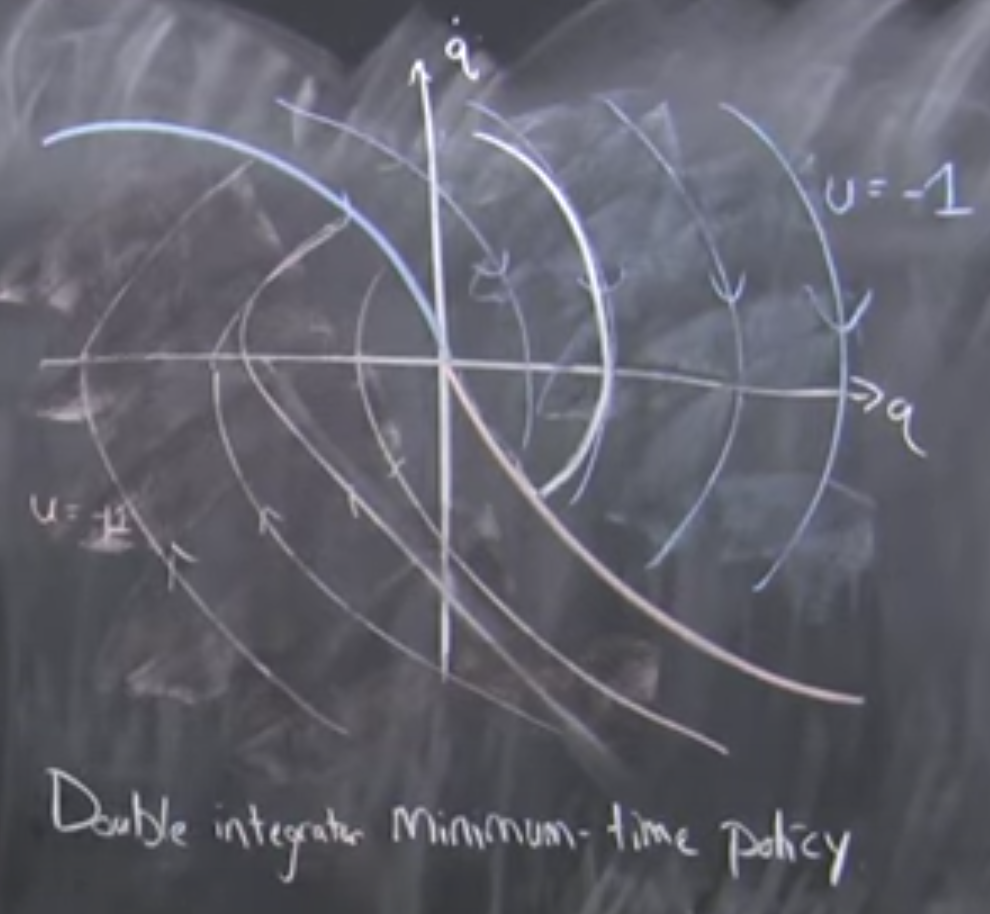 q̇
u = -1
q
u = +1
Double integrator minimum-time policy